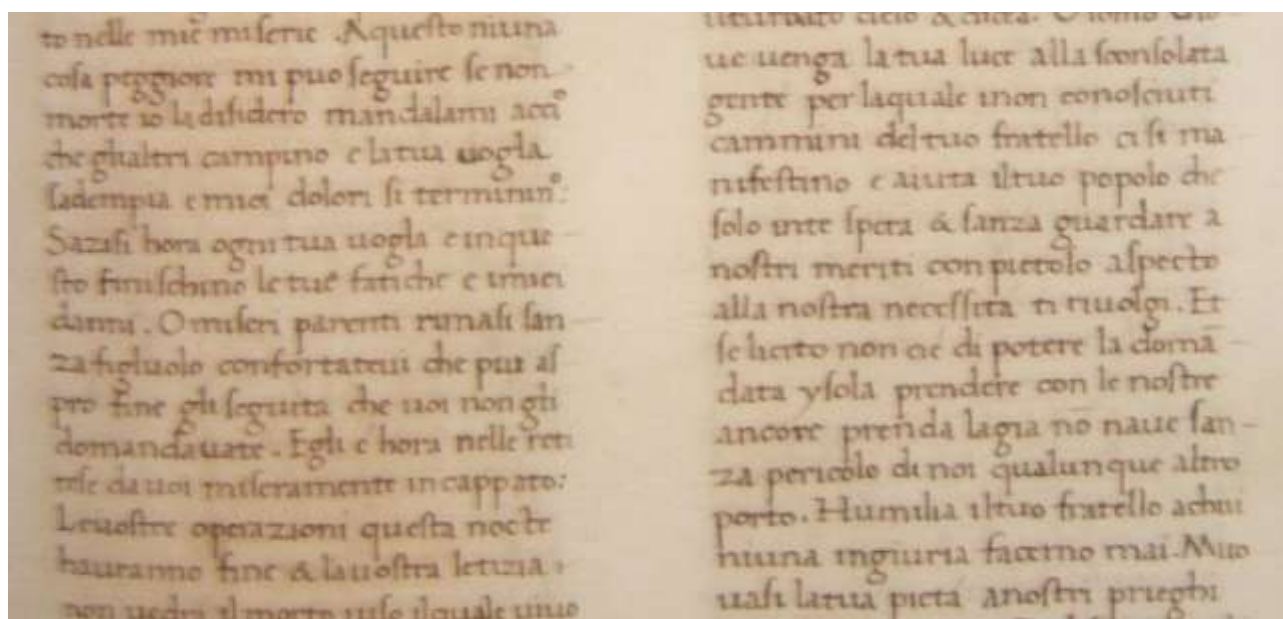 to nelle mie miserie. A questo niuna
cosa peggiore mi puo seguire se non
morte io la disidero mandalami acciº
che glialtri campino e la tua uogla
sadempia e miei dolori si termininº:
Sazisi hora ogni tua uogla e inque
sto finischino le tue fatiche e imiei
danni. O miseri parenti rimasi san
za figluolo confortateui che piu as
pro fine gli seguita che uoi non gli
domandauate. Egli e hora nelle reti
tese da uoi miseramente incappato:
Leuostre operazioni questa nocte
hauranno fine & lauostra letizia:
non uedra il morto uiso ilquale uiuo
cielo &
ue uenga la tua luce alla sconsolata
gente per laquale inon conosciuti
cammini del tuo fratello ci si ma
nifestino e aiuta iltuo popolo che
solo inte spera & sanza guardare a
nostri meriti con pietoso aspecto
alla nostra necessita ti riuolgi. Et
se licito non cie di potere la domā
data ysola prendere con le nostre
ancore prenda lagia nō naue san-
za pericolo di noi qualunque altro
porto. Humilia iltuo fratello achui
niuna ingiuria facemo mai. Muo
uasi latua pieta anostri prieghi